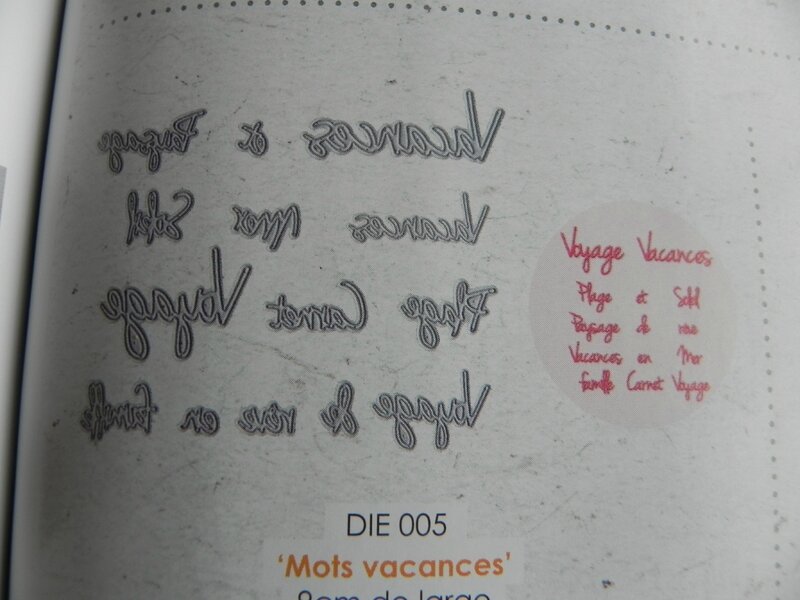 Vacances et Paysage
Vacances Mer Soleil
Plage Carnet Voyage
Voyage de rêve en famille
Voyage Vacances
Plage et Soleil
Paysage de rêve
Vacances en Mer
famille Carnet Voyage
DIE 005
'Mots vacances'
9cm de large